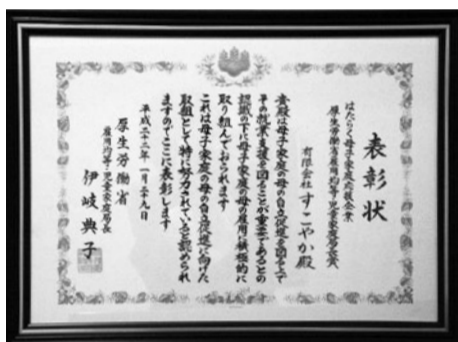 表彰状
はたらく母子家庭応援企業
厚生労働省雇用均等・児童家庭局長賞
有限会社 すこやか殿
貴殿は母子家庭の母の自立促進を図る上で
その就業支援を図ることが重要であるとの
認識の下に母子家庭の母の雇用に積極的に
取り組んでおられます
これは母子家庭の母の自立促進に向けた
取組として特に努力されていると認められ
ますのでここに表彰します
平成二十二年一月二十九日
厚生労働省
雇用均等・児童家庭局長
伊岐典子